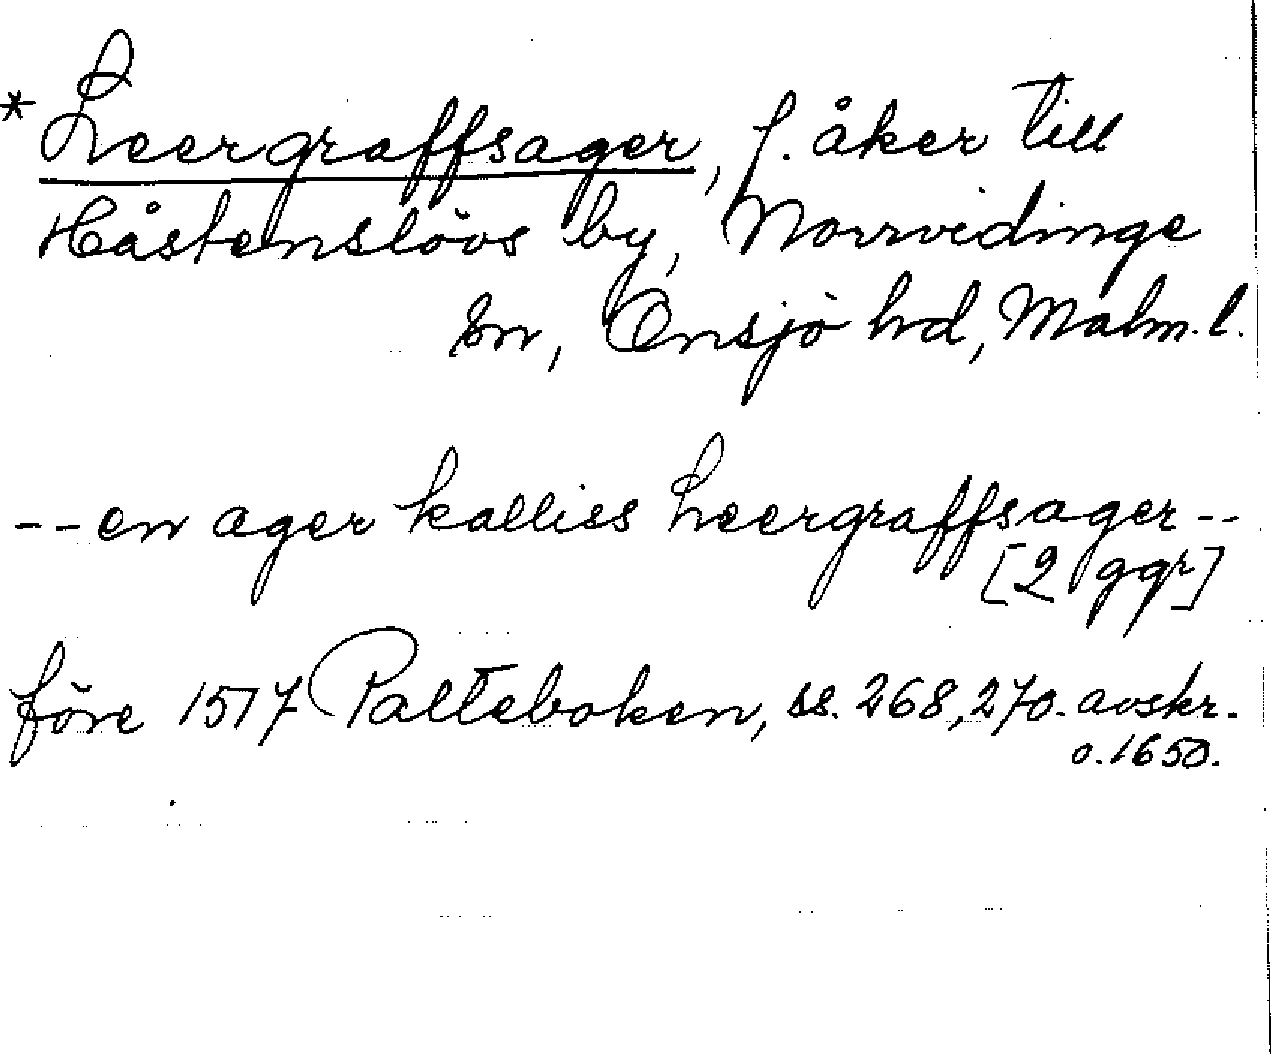 *Leergraffsager, f. åker till
Håstenslövs by, Norrvidinge
sn, Onsjö hd, Malm. l.
-- en ager kalliss Leergraffsager --
[2 ggr]
före 1517 Palteboken, ss. 268, 270. avskr.
o. 1650.